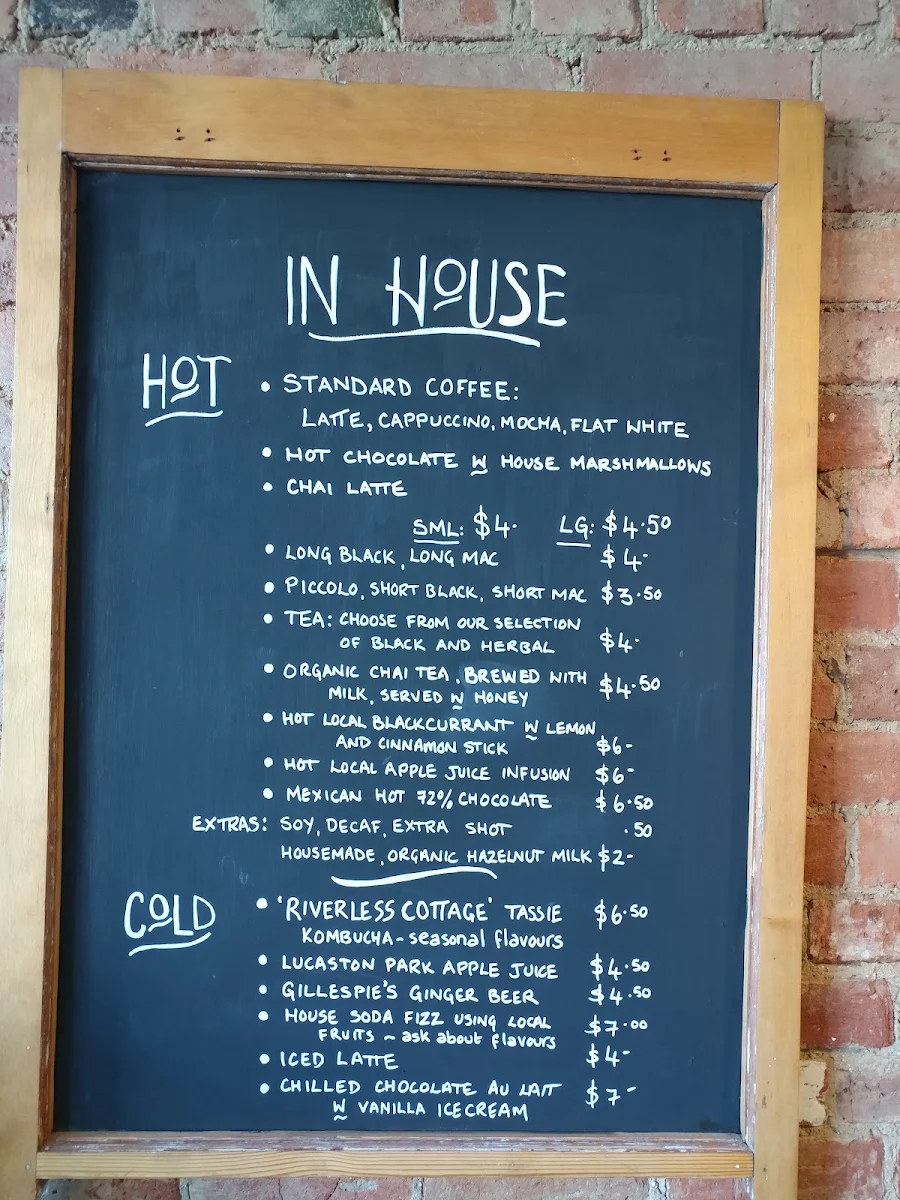 IN HOUSE
HOT
• STANDARD COFFEE:
LATTE, CAPPUCCINO, MOCHA, FLAT WHITE
• HOT CHOCOLATE W HOUSE MARSHMALLOWS
• CHAI LATTE
SML: $4- LG: $4.50
• LONG BLACK, LONG MAC $4-
• PICCOLO, SHORT BLACK, SHORT MAC $3.50
• TEA: CHOOSE FROM OUR SELECTION
OF BLACK AND HERBAL $4-
• ORGANIC CHAI TEA, BREWED WITH $4.50
MILK, SERVED W HONEY
• HOT LOCAL BLACKCURRANT W LEMON
AND CINNAMON STICK $6-
• HOT LOCAL APPLE JUICE INFUSION $6-
• MEXICAN HOT 72% CHOCOLATE $6.50
EXTRAS: SOY, DECAF, EXTRA SHOT .50
HOUSEMADE, ORGANIC HAZELNUT MILK $2-
COLD
• 'RIVERLESS COTTAGE' TASSIE $6.50
KOMBUCHA - seasonal flavours
• LUCASTON PARK APPLE JUICE $4.50
• GILLESPIE'S GINGER BEER $4.50
• HOUSE SODA FIZZ USING LOCAL $7.00
FRUITS ~ ask about flavours
• ICED LATTE $4-
• CHILLED CHOCOLATE AU LAIT $7-
W VANILLA ICECREAM